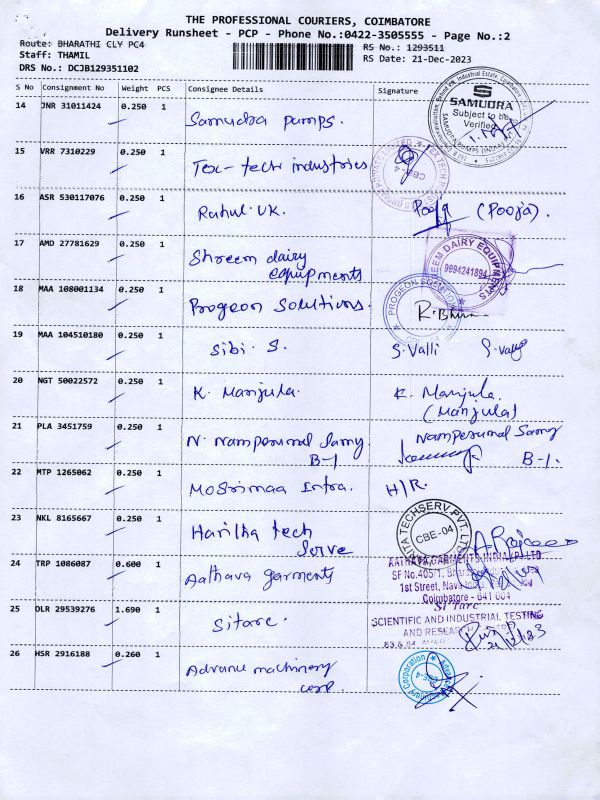 THE PROFESSIONAL COURIERS, COIMBATORE
Delivery Runsheet - PCP - Phone No.:0422-3505555 - Page No.:2
Route: BHARATHI CLY PC4
RS No.: 1293511
Staff: THAMIL
RS Date: 21-Dec-2023
DRS No.: DCJB129351102
S No Consignment No Weight PCS Consignee Details Signature
14 JNR 31011424 0.250 1 Samudra pumps.
SAMUDRA
Subject to be
Verified
15 VRR 7310229 0.250 1 Tex-tech industries
CBE-4
16 ASR 530117076 0.250 1 Rahul VK. Pooja (Pooja).
17 AMD 27781629 0.250 1 Shreem dairy
equipments
DAIRY EQUIPMENTS
9894241894
18 MAA 108001134 0.250 1 Progeon Solutions.
PROGEON SOLUTIONS
19 MAA 104510180 0.250 1 Sibi S. S. Valli S. Valli
20 NGT 50022572 0.250 1 K. Manjula. K. Manjula.
(Manjula)
21 PLA 3451759 0.250 1 N. Namperumal Samy Namperumal Samy
B-1 B-1.
22 MTP 1265062 0.250 1 Mosrimaa Infra. H/R.
23 NKL 8165667 0.250 1 Haritha tech
Serve
TECHSERV PVT. LTD
CBE-04
24 TRP 1086087 0.600 1 Aathava garments
AATHAVA GARMENTS INDIA (P) LTD
SF No.405/1,
1st Street,
Coimbatore - 641 004
25 DLR 29539276 1.690 1 Sitarc.
Si Tarc
SCIENTIFIC AND INDUSTRIAL TESTING
AND RESEARCH
21/12/23
26 HSR 2916188 0.260 1 Advance machinery
corp.
CBE-4